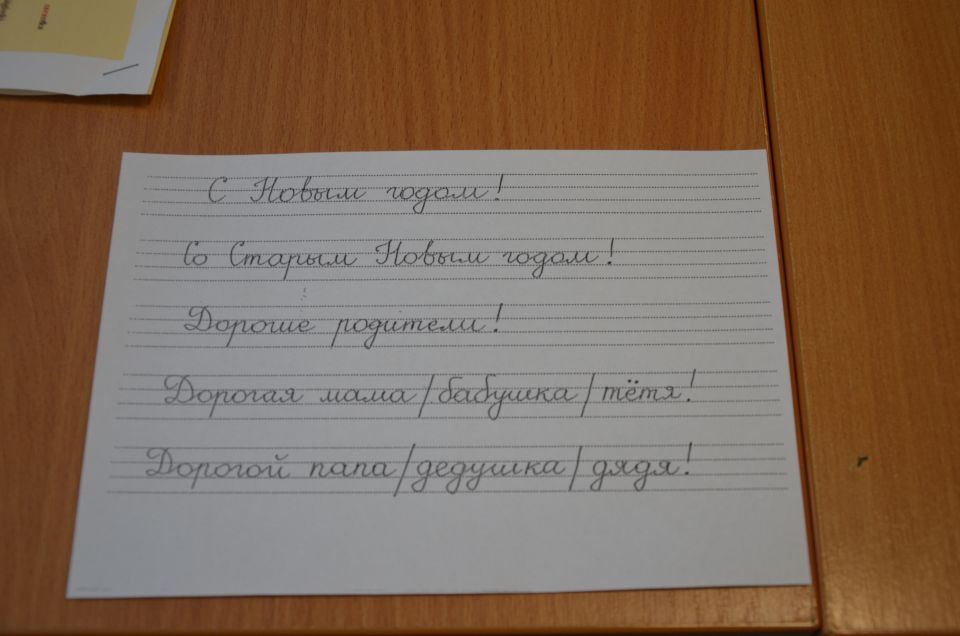 С Новым годом!
Со Старым Новым годом!
Дорогие родители!
Дорогая мама/бабушка/тётя!
Дорогой папа/дедушка/дядя!